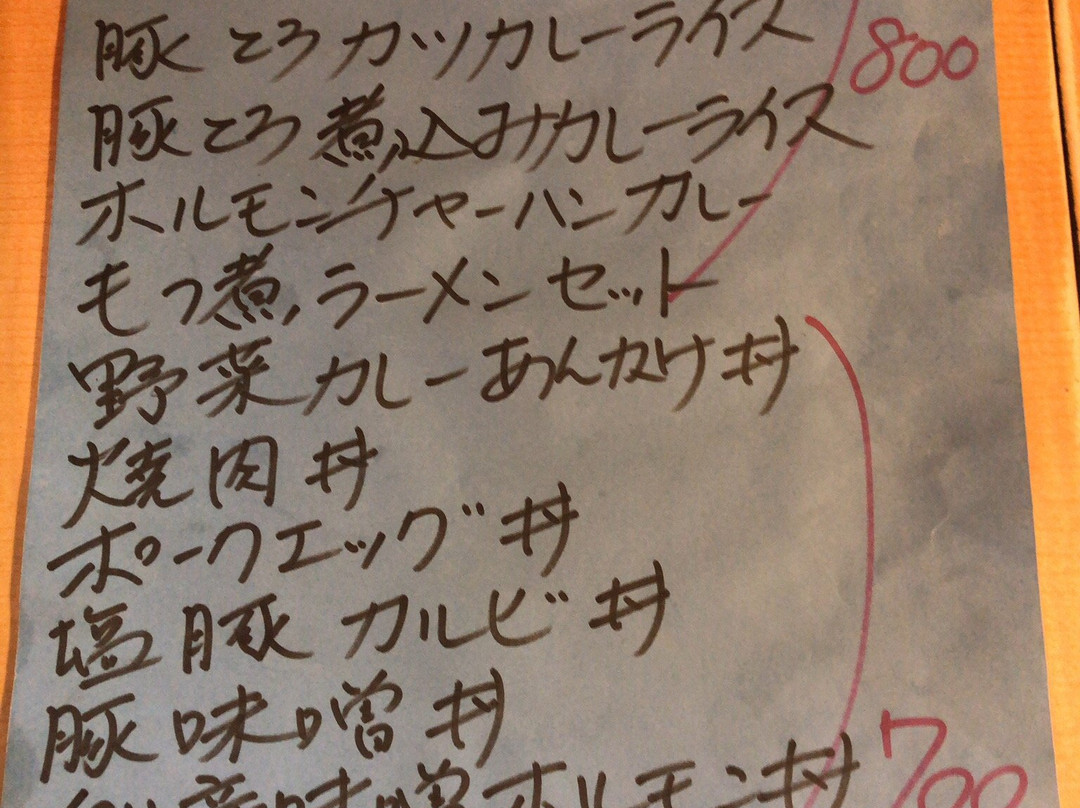 豚ころカツカレーライス 800
豚ころ煮込みカレーライス
ホルモンチャーハンカレー
もつ煮ラーメンセット
野菜カレーあんかけ丼
焼肉丼
ポークエッグ丼
塩豚カルビ丼
豚味噌丼
味噌ホルモン丼 700